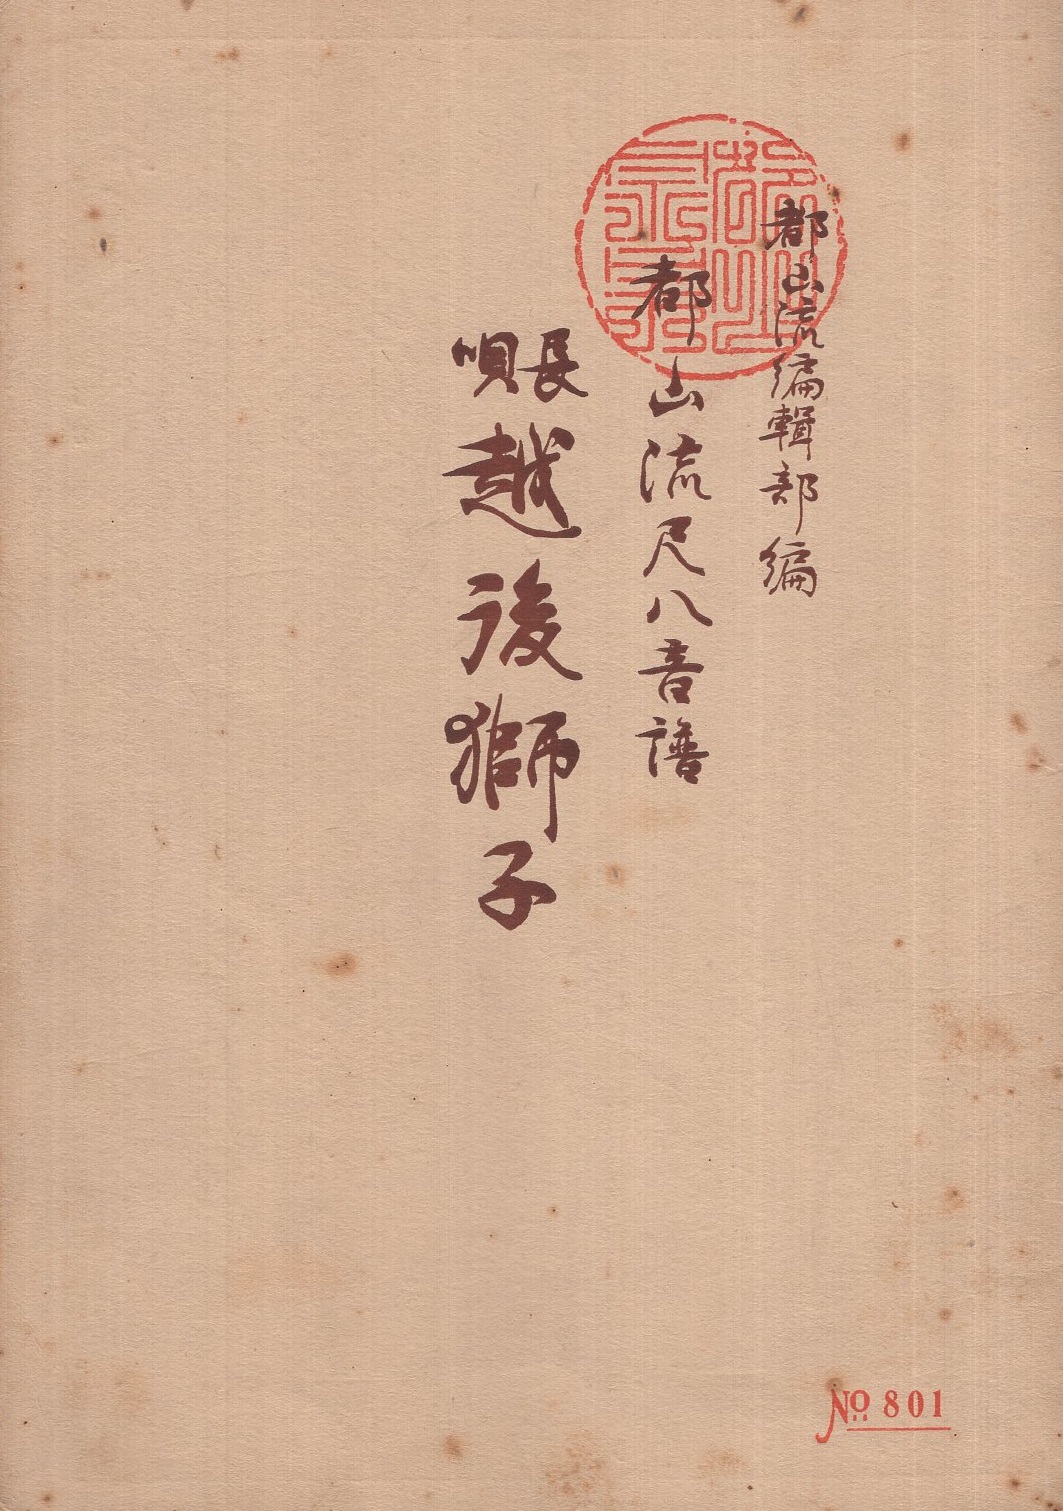 都山流編輯部編
都山流尺八音譜
長唄 越後獅子
No 801